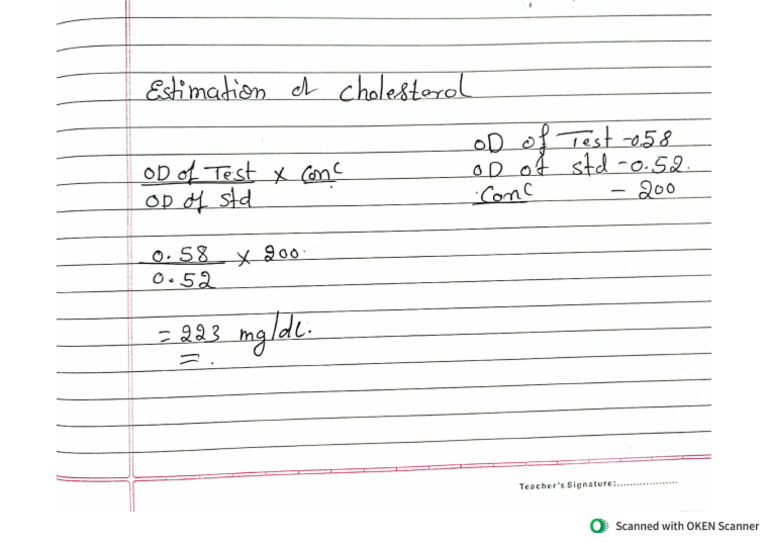 Estimation of Cholesterol
OD of Test -0.58
OD of std -0.52.
Conc - 200
OD of Test x Conc
OD of std
0.58 x 200.
0.52
= 223 mg/dl.
= .
Teacher's Signature:....................
Scanned with OKEN Scanner